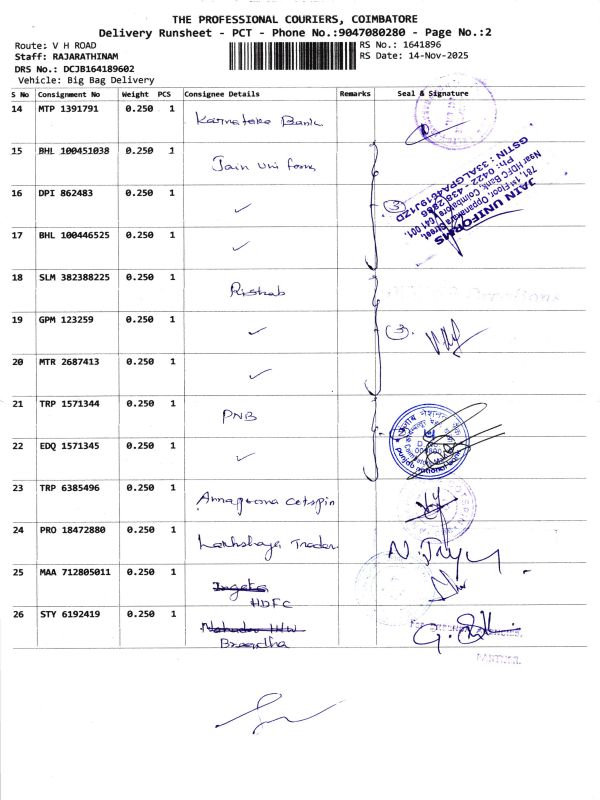 THE PROFESSIONAL COURIERS, COIMBATORE
Delivery Runsheet - PCT - Phone No.:9047080280 - Page No.:2
Route: V H ROAD
RS No.: 1641896
Staff: RAJARATHINAM
RS Date: 14-Nov-2025
DRS No.: DCJB164189602
Vehicle: Big Bag Delivery
S No Consignment No Weight PCS Consignee Details Remarks Seal & Signature
14 MTP 1391791 0.250 1 Karnataka Bank
15 BHL 100451038 0.250 1 Jain Uniforms
16 DPI 862483 0.250 1 ✓ ③
JAIN UNIFORMS
781, 1st Floor, Oppanakara Street,
Near HDFC Bank, Coimbatore - 641 001.
Ph: 0422 - 4382986
17 BHL 100446525 0.250 1 ✓
18 SLM 382388225 0.250 1 Rishab
19 GPM 123259 0.250 1 ✓ ③.
20 MTR 2687413 0.250 1 ✓
21 TRP 1571344 0.250 1 PNB
22 EDQ 1571345 0.250 1 ✓
punjab national bank
23 TRP 6385496 0.250 1 Annapoorna Cotspin
24 PRO 18472880 0.250 1 Lakhshaya Trader
25 MAA 712805011 0.250 1
HDFC
26 STY 6192419 0.250 1
PARTNER.